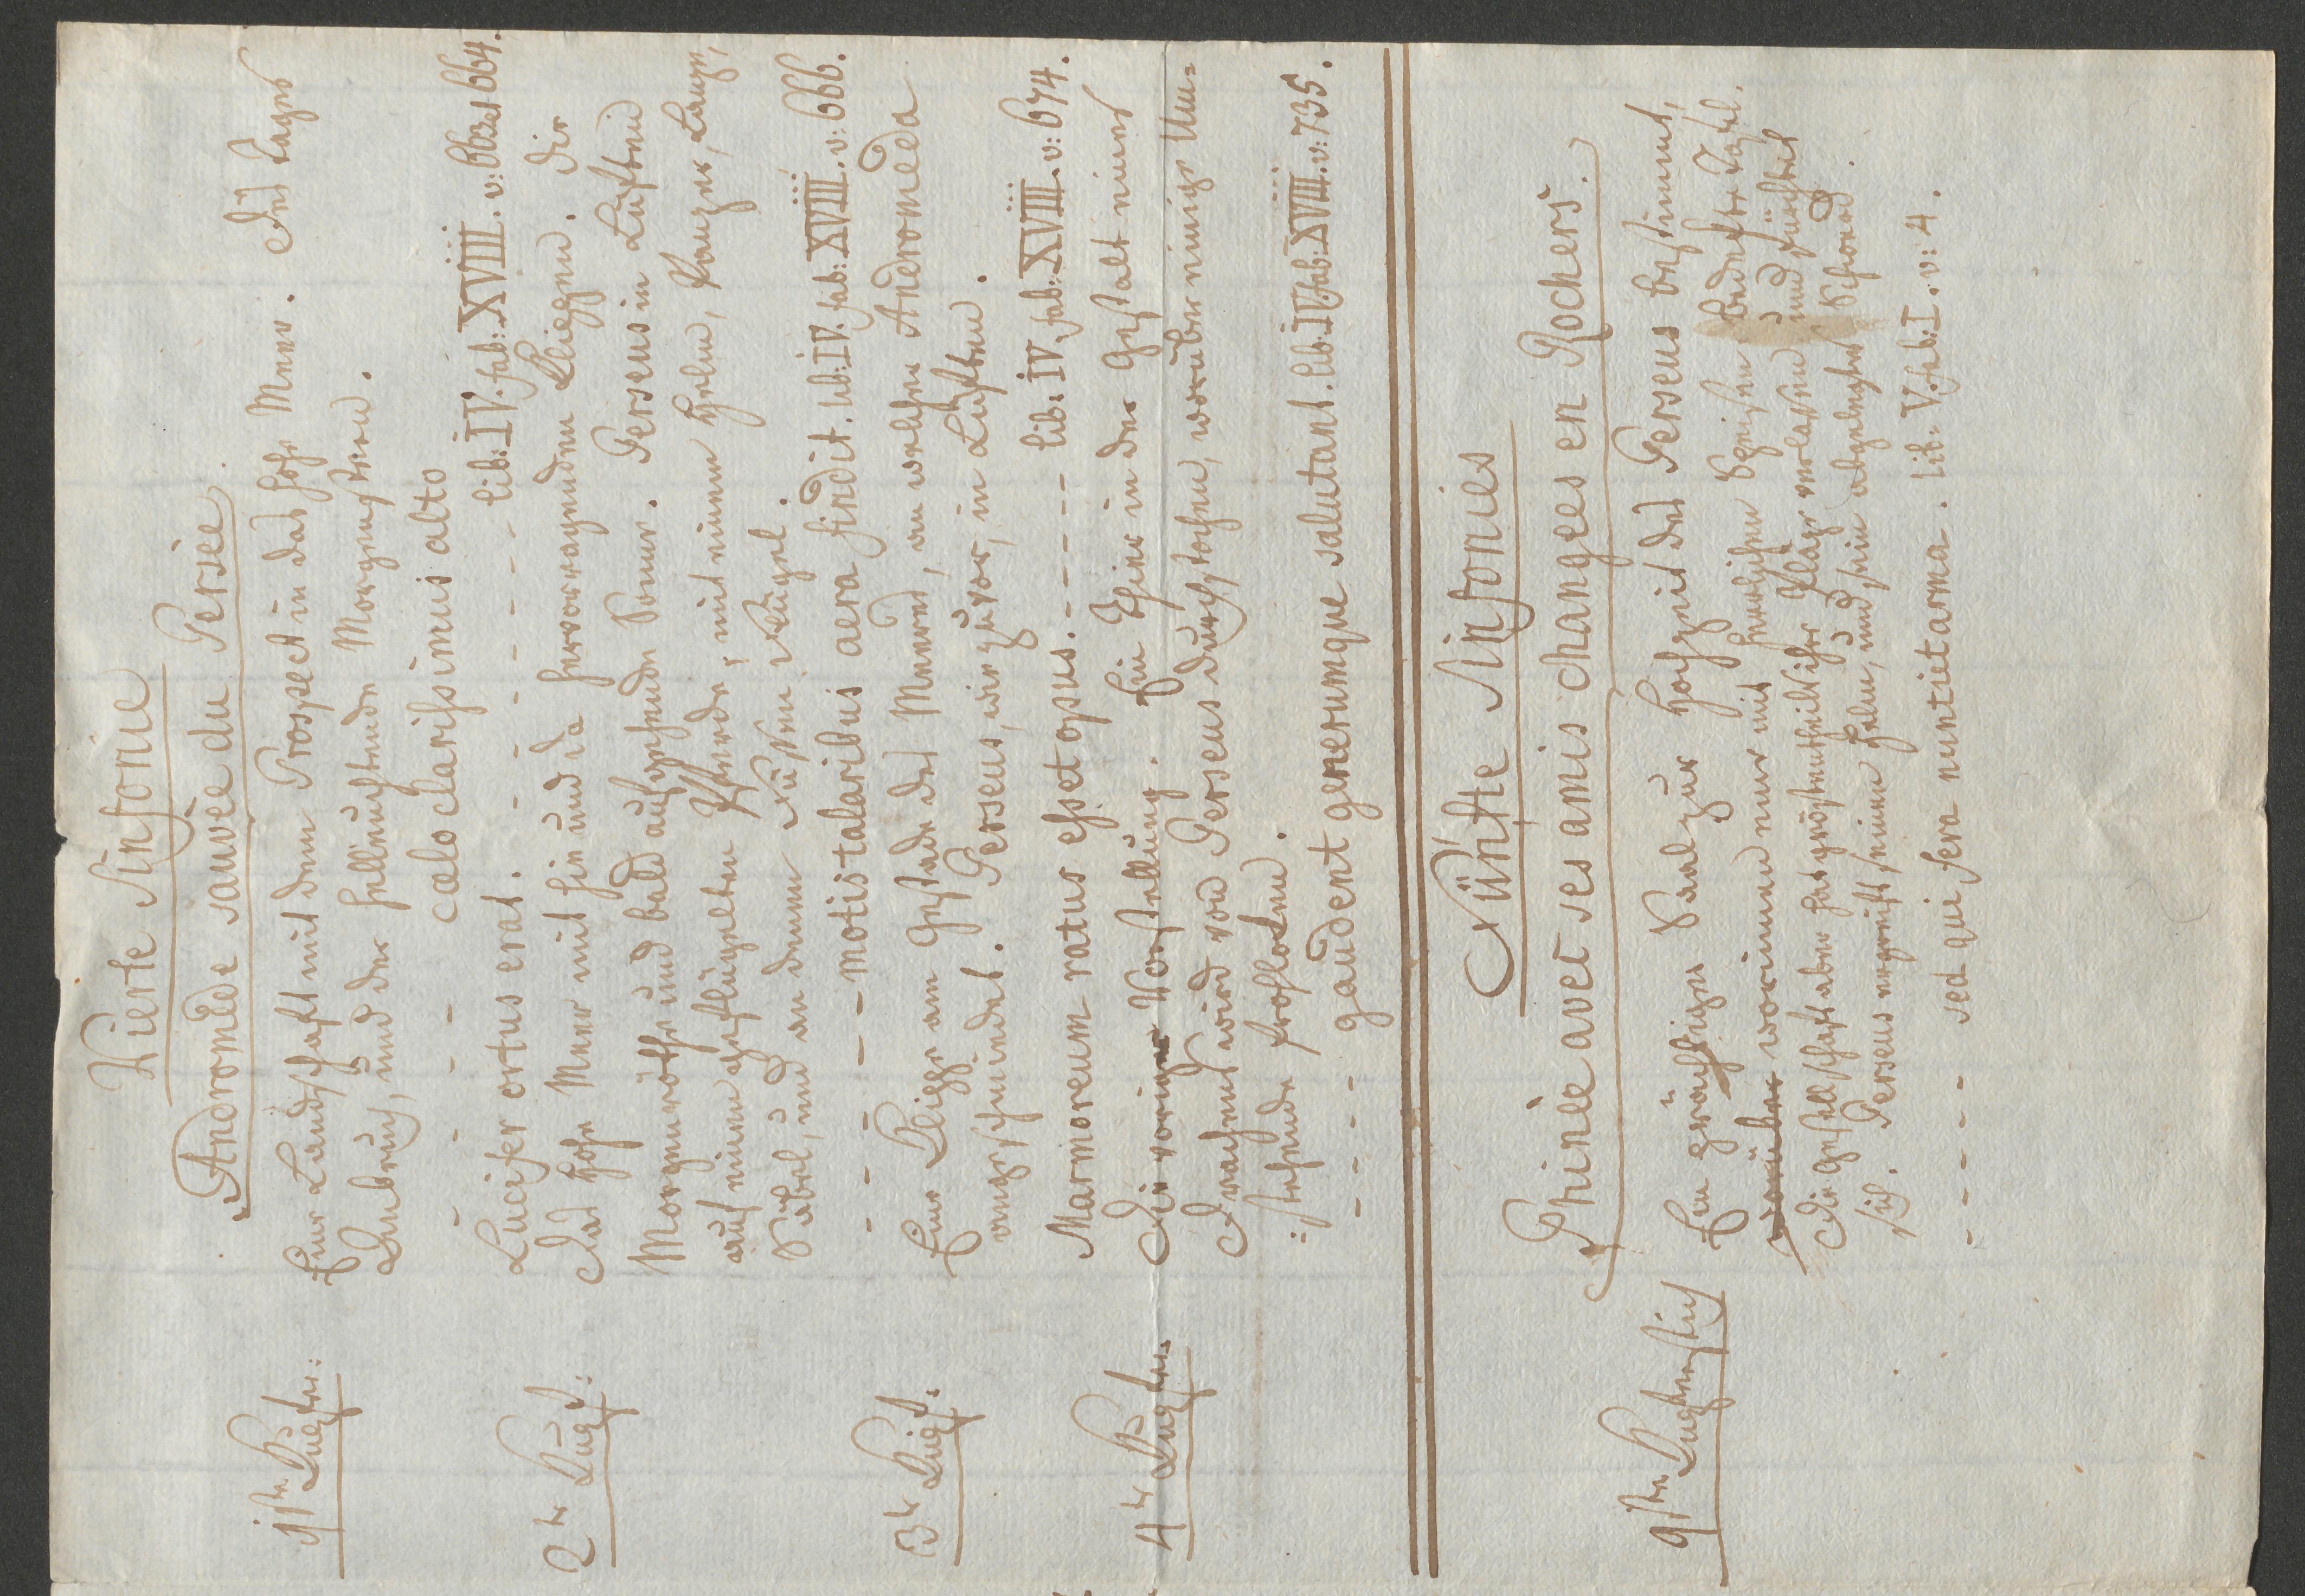 Vierte Sinfonie
Andromède sauvèe du Persèe
1ste Kupfer: Eine Landschaft mit dem Prospect in das hohe Meer. Des Tages
Anbruch, und der hellleuchtende Morgenstern.
- - - - - cælo clarissimus alto
Lucifer ortus erat. - - - - - - - lib: IV. fab: XVIII. v: 663 et 664.
2te Kupf: Das hohe Meer mit hin und da hervorragenden Klippen. Die
Morgenröthe und bald aufgehende Sonne. Perseus in Lüften
auf einem geflügelten Pferde, mit einem Helm, Panzer, Lanze,
Säbel, und an denen Füssen Flügel.
- - - - - motis talaribus aera findit. lib: IV. fab: XVIII. v: 666.
3te Kupf: Eine Klippe am Gestade des Meeres, an welche Andromeda
angeschmiedet. Perseus, wie zuvor, in Lüften.
Marmoreum ratus esset opus. - - - - - lib: IV. fab: XVIII. v: 674.
4te Kupfer. Die vorige Vorstellung. Ein Thier in der Gestalt eines
Drachens wird von Perseus durchstochen, worüber einige Um=
=stehende frohlocken.
- - - - gaudent generumque salutant. lib: IV. fab: XVIII. v: 735.
Fünfte Sinfonies
Phinèe avec ses amis changées en Rochers.
1ste Kupferstich Ein prächtiger Saal zur Hochzeit des Perseus bestimmt,
worinnen nur mit herrlichen Speisen bedeckte Tafel.
Die Gesellschaft aber hat größtentheils ihre Pläze verlassen und fürchtet
sich. Perseus ergreift seinen Helm, und sein abgelegtes Schwerd.
- - - - - sed qui fera nuntiet arma. lib: V. fab: I. v: 4.